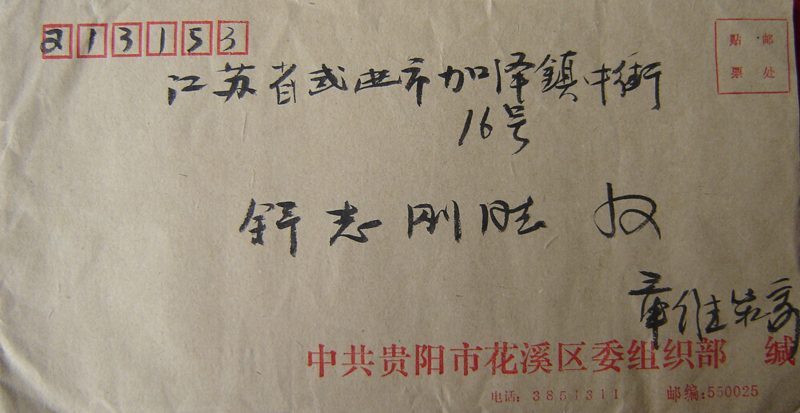 213153
贴 邮
票 处
江苏省武进市加泽鎮中街
16号
舒志刚 收
章维
中共贵阳市花溪区委组织部 缄
电话: 3851311 邮编:550025